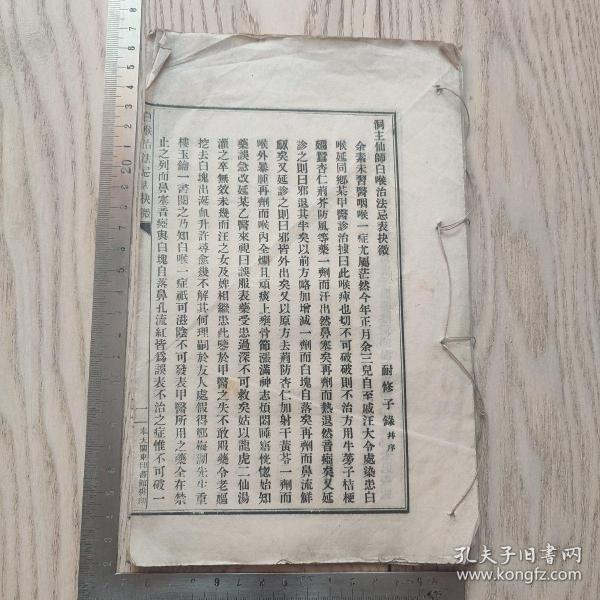 洞主仙師白喉治法忌表抉微
耐修子錄 并序
余素未習醫咽喉一症尤屬茫然今年正月余三兒自至戚汪大令處染患白
喉延同鄉某甲醫診治據曰此喉痺也切不可破破則不治方用牛蒡子桔梗
殭蠶杏仁荊芥防風等藥一劑而汗出然鼻塞矣再劑而熱退然音瘂矣又延
診之則曰邪退其半矣以前方略加增減一劑而白塊自落矣再劑而鼻流鮮
衄矣又延診之則曰邪皆外出矣又以原方去荊防杏仁加射干黃芩一劑而
喉外暴腫再劑而喉內全爛且頑痰上壅骨節漲滿神志煩悶睡寤恍惚始知
藥誤急改延某乙醫來視曰誤服表藥受患過深不可救矣姑以龍虎二仙湯
灌之卒無效未幾而汪之女及婢相繼患此鑒於甲醫之失不敢服藥令老嫗
挖去白塊出涎血升許尋愈幾不解其何理嗣於友人處假得鄭梅澗先生重
樓玉鑰一書閱之乃知白喉一症祇可滋陰不可發表甲醫所用之藥全在禁
止之列而鼻塞音瘂與白塊自落鼻孔流紅皆爲誤表不治之症惟不可破一
白喉治法忌表抉微
一
奉天關東印書館排印
20
孔夫子旧书网
www.kongfz.com